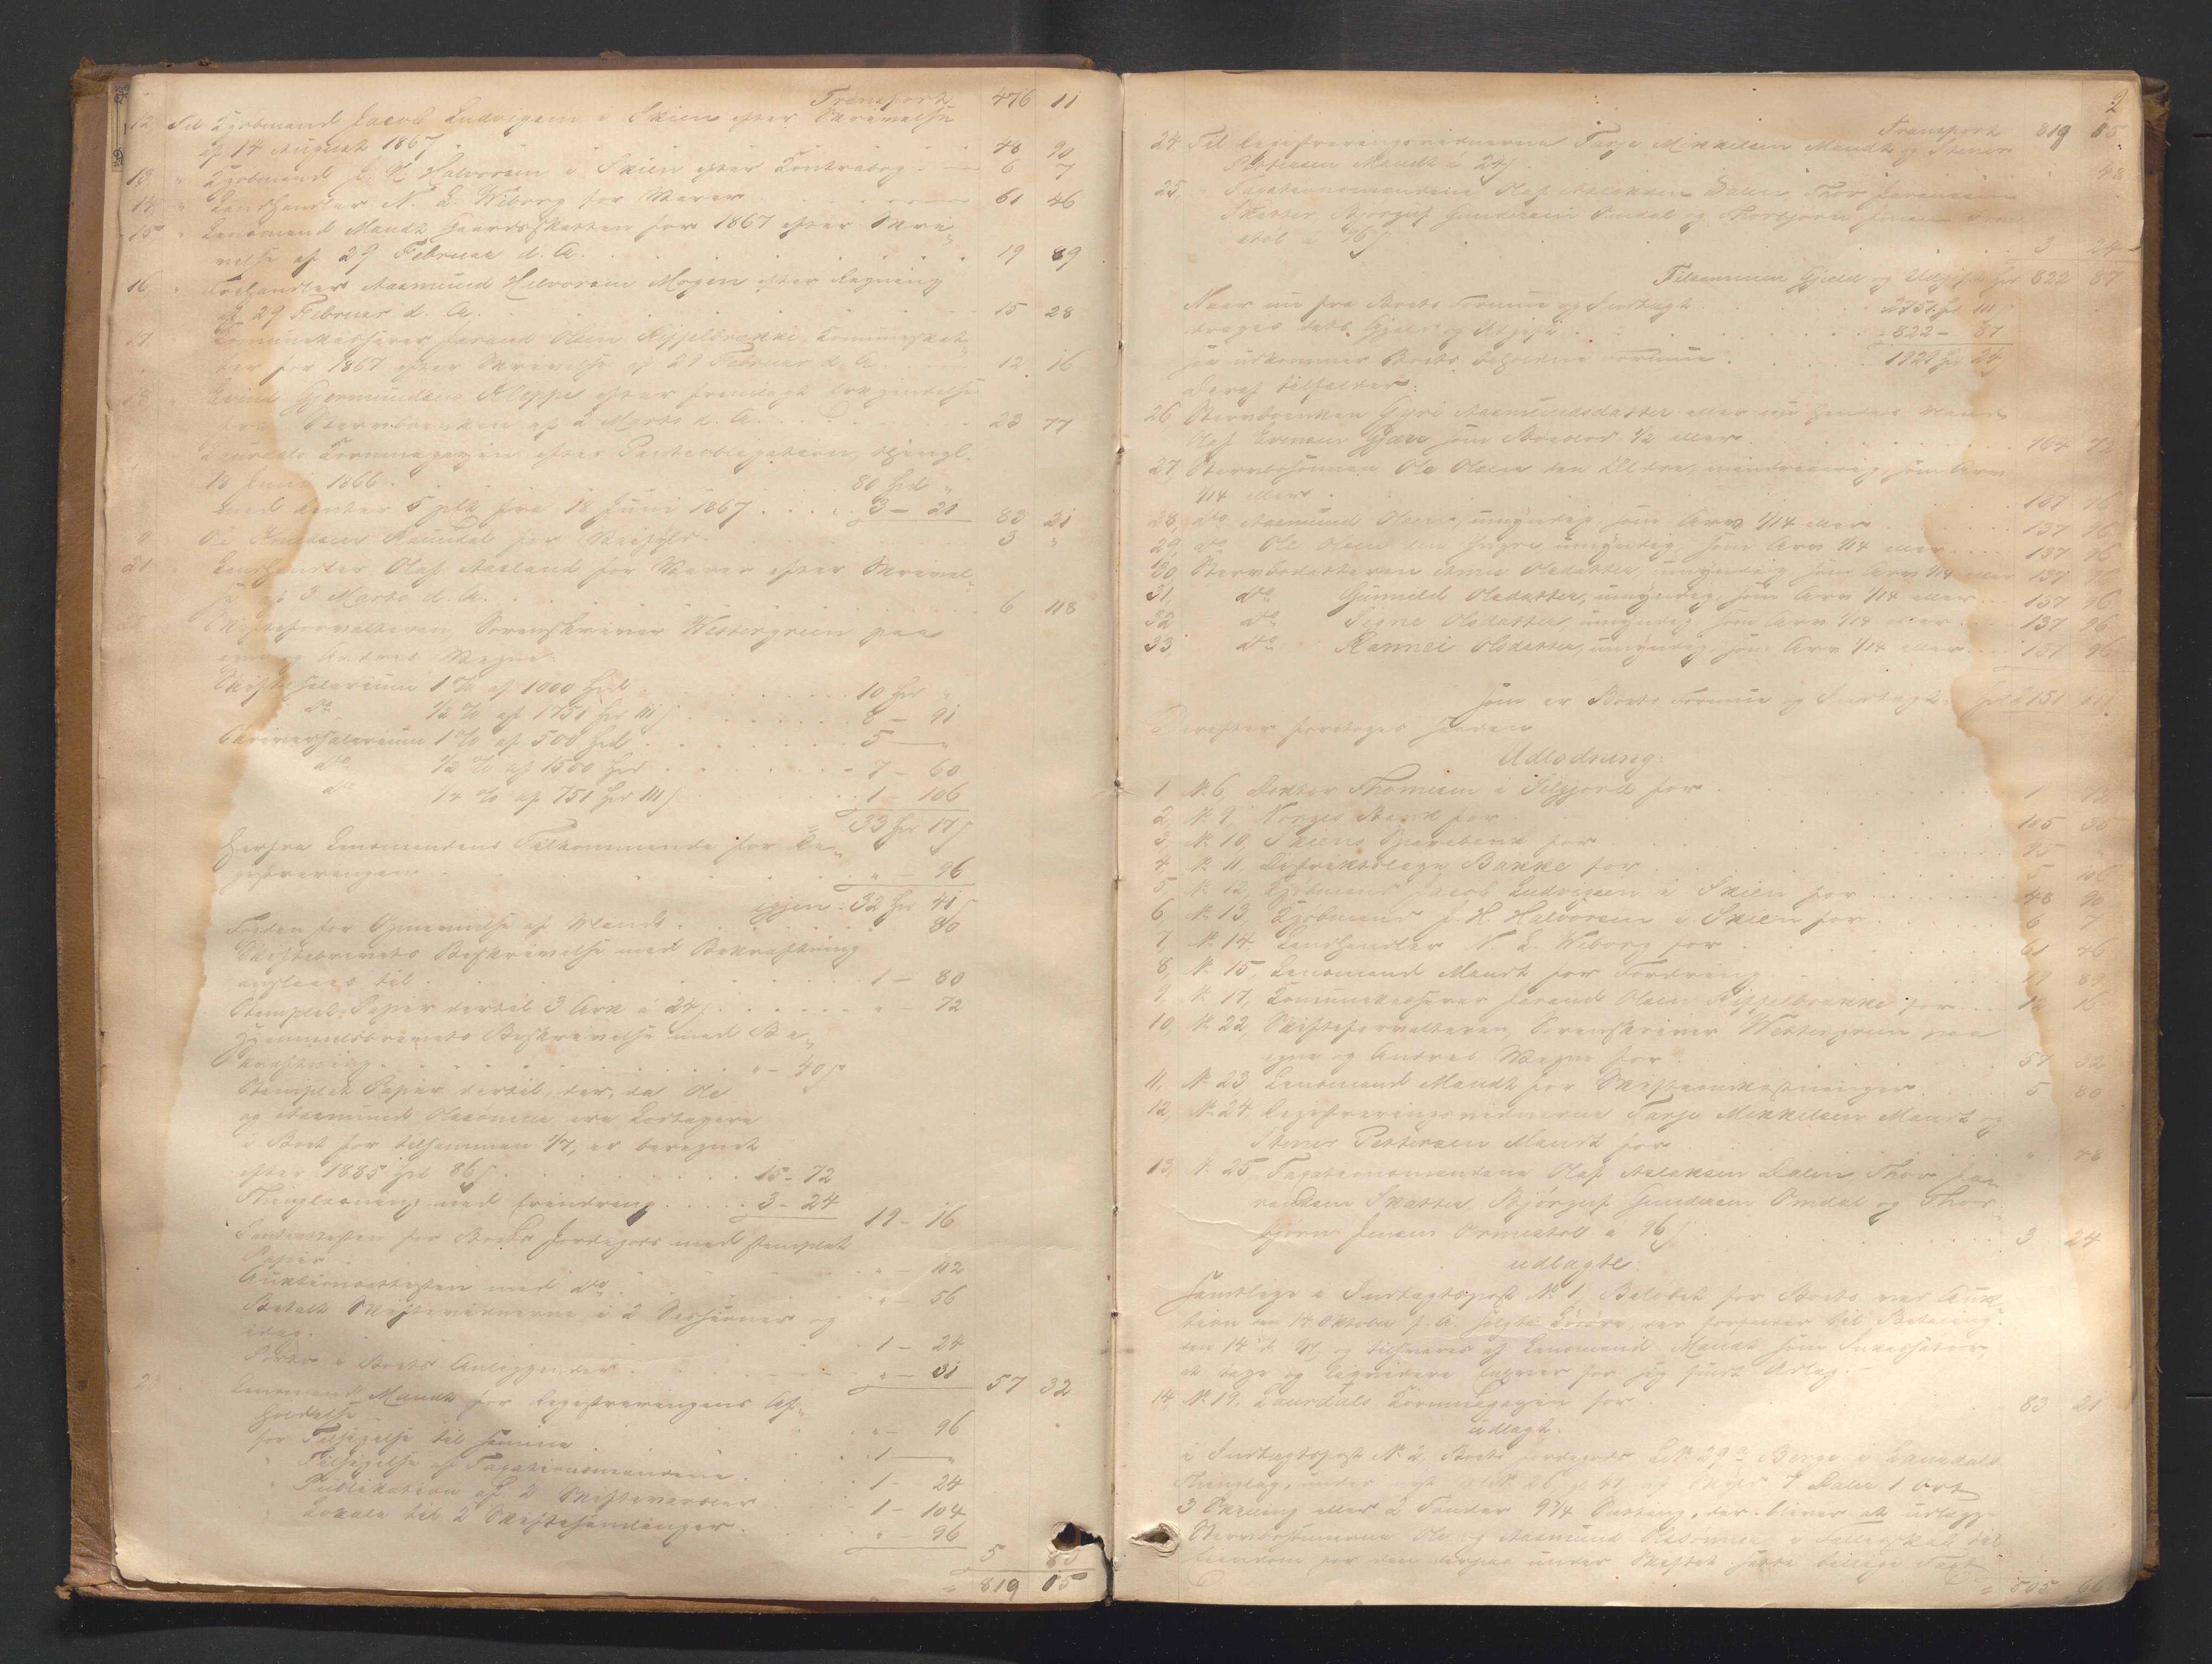 Transport 476 11
12, Til Kjøbmand Jacob Ludvigsen i Skien efter Skrivelse
af 14 August 1867 . . . 48 90
13, " Kjøbmand J. H. Halvorsen i Skien efter Kontrabog 6 7
14, " Landhandler N. L. Wiborg for Varer . . . 61 46
15, " Lensmand Mandt Gaardsskatten for 1867 efter Skri=
velse af 29 Februar d. A. . . . 19 89
16, " Landhandler Aasmund Halvorsen Mogen efter Regning
af 29 Februar d. A. . . . 15 28
17, " Kommunekasserer Jaraand Olsen Kippelbrække Kommuneskat=
ter for 1867 efter Skrivelse af 29 Februar d. A. 12 16
18, " Eivind Gjermundsens Kleppe efter fremlagt Erkjendelse
fra Stervboenken af 2 Marts d. A. . . . 23 77
Laurdals Kornmagazin efter Panteobligation, thingl.
18 Juni 1866 . . . 80 Spd "
med Renter 5 pCt fra 18 Juni 1867 . . . 3 - 21 83 21
Ole Knudsen Raundal for . . . 3 "
21 " Landhandler Olaf Aaland for Varer efter Skrivel=
se af 3 Marts d. A. . . . 6 118
Skifteforvalteren, Sorenskriver Westergreen paa
egne og Andres Vegne:
Skiftesalarium 1 % af 1000 Spd . . . 10 Spd "
do ½ % af 1751 Spd 111 s . . . 8 - 91
Skriversalarium 1 % af 500 Spd . . . 5 - "
do ½ % af 1500 Spd . . . 7 - 60
do ¼ % af 751 Spd 111 s . . . 1 - 106
33 Spd 17 s
Herfra Lensmandens Tilkommende for Re=
gistreringen . . . " - 96
igjen 32 Spd 41 s
Fogden for Opnævnelse af Mænd . . . 80
Skiftebrevets Beskrivelse med Bekræftning
anslaaes til . . . 1 - 80
Stemplet Papir dertil 3 Ark à 24 s . . . " - 72
Hjemmelsbrevets Beskrivelse med Be=
kræftning . . . " - 40 s
Stemplet Papir dertil, der, da Ole
og Aasmund Olssønner ere Lodtagere
i Boet for tilsammen 1/7, er beregnet
efter 1885 Spd 86 s . . . 15 - 72
Thinglæsning med Erindring . . . 3 - 24 19 - 16
Panteattesten for Boets Jordegods med stemplet
Papir . . . " - 112
Auktionsattesten med do . . . " 56
Betalt Skiftevidnerne i 2 Sessioner og
idag . . . 1 - 24
Porto i Boets Anliggender . . . " - 31 57 32
23 Lensmand Mandt for Registreringens Af=
holdelse . . . " - 96
for Tilsigelse til samme . . . 1 - "
" Tilsigelse af Taxationsmændene . . . 1 - 24
" Publikation af 2 Skiftevarsler . . . 1 - 104
" Lokale til 2 Skiftesamlinger . . . " - 96
5 80
819 85
2
Transport 819 85
24 Til Registreringsvidnerne Tarje Mikkelsen Mandt og Stener
Pettersen Mandt à 24 s . . . 48
25, " Taxationsmændene Olaf Aslaksen Dalen, Thor Jaraandsen
Skatter, Bjørguf Gundersen Omdal og Thorbjørn Jensen Orme=
støl à 96 s . . . 3 24
Tilsammen Gjæld og Udgift Spd 822 87
Naar nu fra Boets Formue og Indtægt . . . 2751 Spd 111 s
drages dets Gjæld og Udgift . . . 822 - 87
saa udkommer Boets beholdne Formue . . . 1929 Spd 24 s
Deraf tilfalder:
26 Stervboenken Gyri Aasmundsdatter eller nu hendes Mand
Olaf Evensen Gjæra som Boeslod ½ eller . . . 964 72
27, Stervbosønnen Ole Olsen den Ældre, mindreaarig, som Arv
1/14 eller . . . 137 96
28, do Aasmund Olsen, umyndig, som Arv 1/14 eller . . . 137 96
29, do Ole Olsen den Yngre, umyndig, som Arv 1/14 eller . . . 137 96
30, Stervbodatteren Anne Olsdatter, umyndig, som Arv 1/14 eller 137 96
31, do Gunnild Olsdatter, umyndig, som Arv 1/14 eller . . . 137 96
32 do Signe Olsdatter, umyndig, som Arv 1/14 eller . . . 137 96
33, do Rannei Olsdatter, umyndig, som Arv 1/14 eller . . . 137 96
som er Boets Formue og Indtægt. Spd 2751 111
Derefter foretoges saadan
Udlodning:
1, No 6, Doktor Thomesen i Silgjord for . . . 1 72
2, No 9, Norges Bank for . . . 105 35
3, No 10, Skiens Sparebank for . . . 95 "
4, No 11, Distriktslæge Bakke for . . . 5 106
5, No 12, Kjøbmand Jacob Ludvigsen i Skien for . . . 48 90
6, No 13, Kjøbmand J. H. Halvorsen i Skien for . . . 6 7
7, No 14, Landhandler N. L. Wiborg for . . . 61 46
8, No 15, Lensmand Mandt for Fordring . . . 19 89
9, No 17, Kommunekasserer Jaraand Olsen Kippelbrække for . . . 12 16
10, No 22, Skifteforvalteren, Sorenskriver Westergreen paa
egne og Andres Vegne for . . . 57 32
11, No 23 Lensmand Mandt for Skifteomkostninger . . . 5 80
12, No 24, Registreringsvidnerne Tarje Mikkelsen Mandt og
Stener Pettersen Mandt for . . . " 48
13, No 25, Taxationsmændene Olaf Aslaksen Dalen, Thor Ja=
raandsen Skatter, Bjørguf Gundersen Omdal og Thor=
bjørn Jensen Ormestøl à 96 s . . . 3 24
udlagte:
samtlige i Indtægtspost No 1, Beløbet for Boets ved Auk=
tion den 14 Oktober f. A. solgte Løsøre, der forfalder til Betaling
den 14 d. M. og tilsvares af Lensmand Mandt som Inkassator,
at tage og liqvidere Enhver for sig sindt Udlæg.
14, No 19, Laurdals Kornmagazin for . . . 83 21
udlagt:
i Indtægtspost No 2, Boets Jordegods L. No 29 a Berge i Laurdals
Thinglag, under M. No 26, af Skyld 7 Daler 1 Ort
3 Skilling eller 2 Tønder 9¾ Sætting, der bliver at udlægge
Stervbosønnerne Ole og Aasmund Olssønner i Fællesskab til
Eiendom for den derpaa under Skiftet satte billige Taxt
505 66